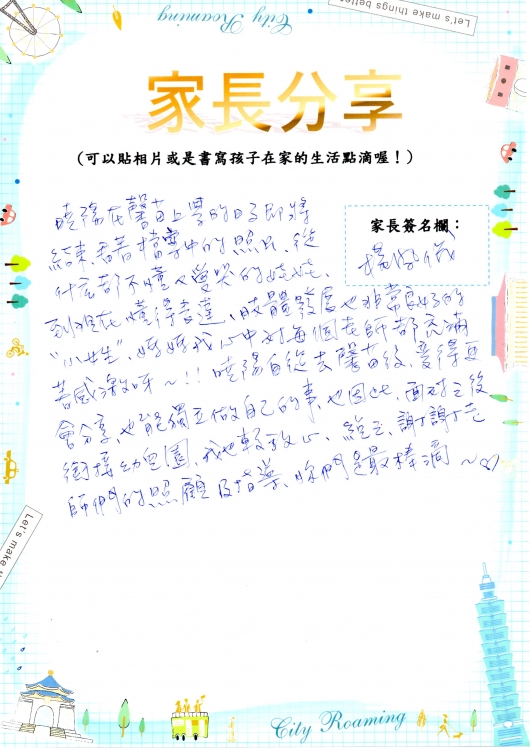 City Roaming
Let's make things better
家長分享
(可以貼相片或是書寫孩子在家的生活點滴喔！)
曉陽在馨苗上學的日子即將
結束,看著檔案中的照片、從
什麼都不懂又愛哭的娃娃、
到現在懂得表達、肢體發展也非常良好的
"小女生",媽媽我心中對每個老師都充滿
著感激呀~!! 曉陽自從去馨苗後,變得更
會分享,也能獨立做自己的事,也因此,面對之後
銜接幼兒園,我也較放心、總之,謝謝老
師們的照顧及指導、妳們是最棒滴~♡
家長簽名欄：
Let's make
City Roaming